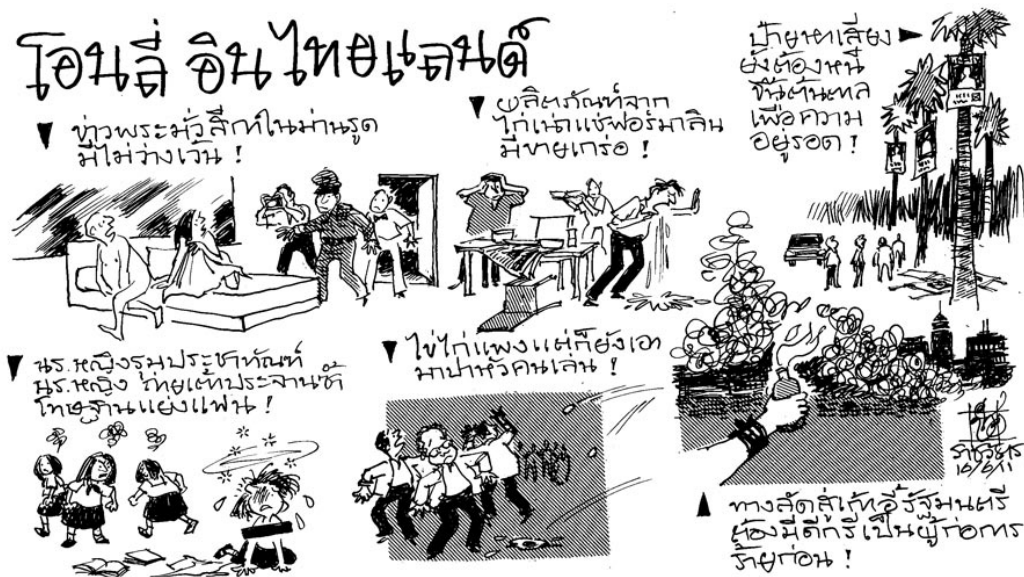 โอนลี่ อิน ไทยแลนด์
ข่าวพระมั่วสีกาในม่านรูด
มีไม่ว่างเว้น !
ผลิตภัณฑ์จาก
ไก่เน่าแช่ฟอร์มาลิน
มีขายเกร่อ !
ป้ายหาเสียง
ยังต้องหนี
ขึ้นต้นตาล
เพื่อความ
อยู่รอด !
นร.หญิงรุมประชาทัณฑ์
นร.หญิง กายเต้าประจานซ้ำ
โทษฐานแย่งแฟน !
ไข่ไก่แพงแต่ก็ยังเอา
มาปาหัวคนเล่น !
ราชวัตร
16/6/11
ทางลัดสู่เก้าอี้รัฐมนตรี
ต้องมีดีกรีเป็นผู้ก่อการ
ร้ายก่อน !